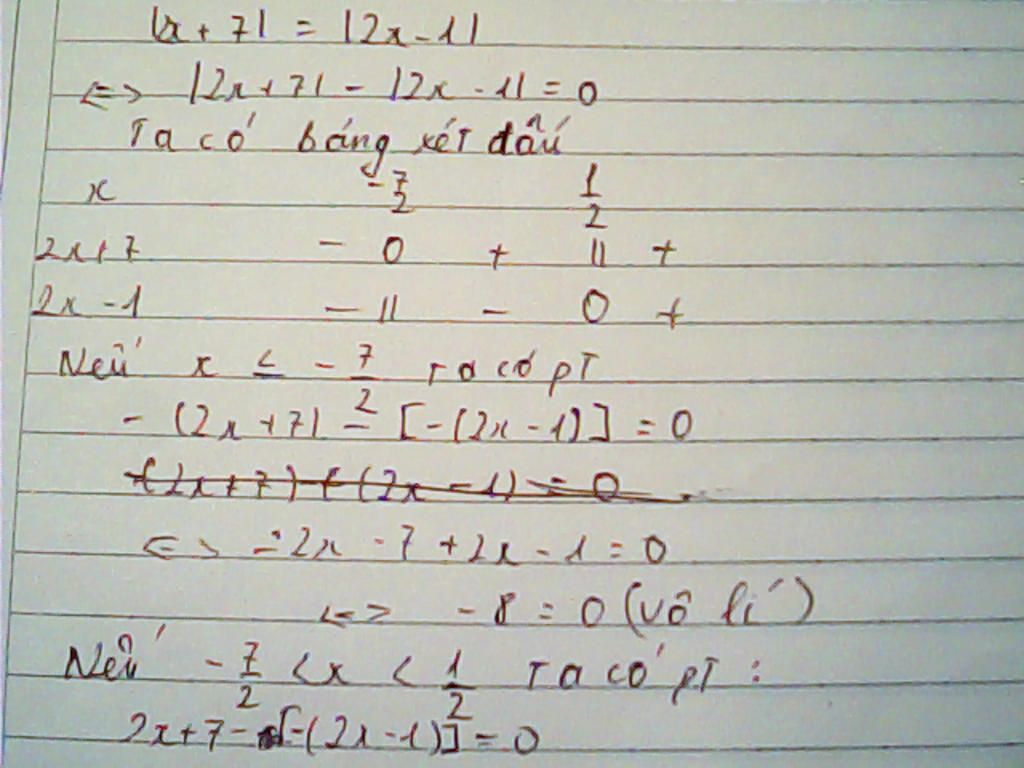 |2x + 7| = |2x - 1|
<=> |2x + 7| - |2x - 1| = 0
Ta có bảng xét dấu
x -7/2 1/2
2x + 7 - 0 + || +
2x - 1 - || - 0 +
Nếu x ≤ -7/2 ta có pT
- (2x + 7) - [-(2x - 1)] = 0
<=> -2x - 7 + 2x - 1 = 0
<=> -8 = 0 (vô lí)
Nếu -7/2 < x < 1/2 Ta có pT :
2x + 7 - [-(2x - 1)] = 0